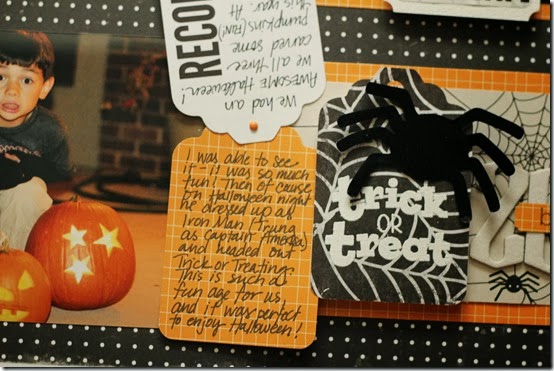 RECO
We had an
AWESOME Halloween!
We all three
carved some
pumpkins (FUN!)
this year. At
I was able to see
it - it was so much
fun! Then of course
on Halloween night
he dressed up as
Iron Man (Trung
as Captain America)
and headed out
Trick or Treating.
This is such a
fun age for us
and it was perfect
to enjoy Halloween!
trick
OR
treat